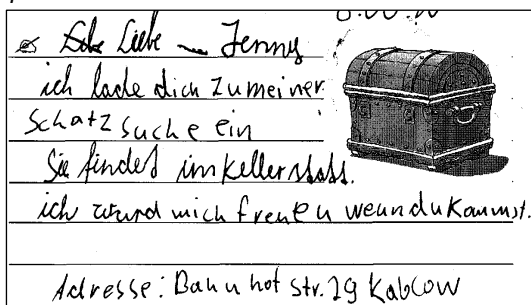 Liebe Jenny
ich lade dich zu meiner
Schatz suche ein
Sie findet im Keller statt.
ich wurd mich freuen wenn du kommst.
Adresse: Bahnhof str. 29 Kablow